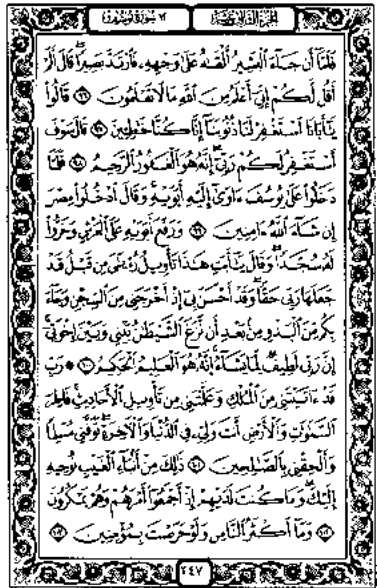 الجزء الثالث عشر
١٢ سورة يوسف
فَلَمَّا أَن جَاءَ الْبَشِيرُ أَلْقَاهُ عَلَىٰ وَجْهِهِ فَارْتَدَّ بَصِيرًا قَالَ أَلَمْ
أَقُل لَّكُمْ إِنِّي أَعْلَمُ مِنَ اللَّهِ مَا لَا تَعْلَمُونَ ٩٦ قَالُوا
يَا أَبَانَا اسْتَغْفِرْ لَنَا ذُنُوبَنَا إِنَّا كُنَّا خَاطِئِينَ ٩٧ قَالَ سَوْفَ
أَسْتَغْفِرُ لَكُمْ رَبِّي إِنَّهُ هُوَ الْغَفُورُ الرَّحِيمُ ٩٨ فَلَمَّا
دَخَلُوا عَلَىٰ يُوسُفَ آوَىٰ إِلَيْهِ أَبَوَيْهِ وَقَالَ ادْخُلُوا مِصْرَ
إِن شَاءَ اللَّهُ آمِنِينَ ٩٩ وَرَفَعَ أَبَوَيْهِ عَلَى الْعَرْشِ وَخَرُّوا
لَهُ سُجَّدًا وَقَالَ يَا أَبَتِ هَٰذَا تَأْوِيلُ رُؤْيَايَ مِن قَبْلُ قَدْ
جَعَلَهَا رَبِّي حَقًّا وَقَدْ أَحْسَنَ بِي إِذْ أَخْرَجَنِي مِنَ السِّجْنِ وَجَاءَ
بِكُم مِّنَ الْبَدْوِ مِن بَعْدِ أَن نَّزَغَ الشَّيْطَانُ بَيْنِي وَبَيْنَ إِخْوَتِي
إِنَّ رَبِّي لَطِيفٌ لِّمَا يَشَاءُ إِنَّهُ هُوَ الْعَلِيمُ الْحَكِيمُ ١٠٠ ۞ رَبِّ
قَدْ آتَيْتَنِي مِنَ الْمُلْكِ وَعَلَّمْتَنِي مِن تَأْوِيلِ الْأَحَادِيثِ فَاطِرَ
السَّمَاوَاتِ وَالْأَرْضِ أَنتَ وَلِيِّي فِي الدُّنْيَا وَالْآخِرَةِ تَوَفَّنِي مُسْلِمًا
وَأَلْحِقْنِي بِالصَّالِحِينَ ١٠١ ذَٰلِكَ مِنْ أَنبَاءِ الْغَيْبِ نُوحِيهِ
إِلَيْكَ وَمَا كُنتَ لَدَيْهِمْ إِذْ أَجْمَعُوا أَمْرَهُمْ وَهُمْ يَمْكُرُونَ
١٠٢ وَمَا أَكْثَرُ النَّاسِ وَلَوْ حَرَصْتَ بِمُؤْمِنِينَ ١٠٣
٢٤٧